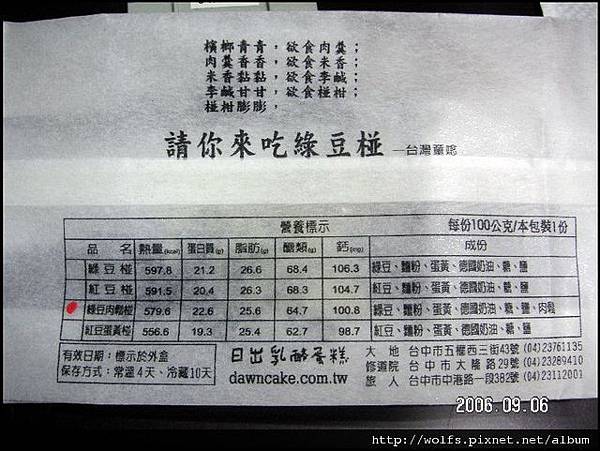 檳榔青青，欲食肉羹；
肉羹香香，欲食米香；
米香黏黏，欲食李鹹；
李鹹甘甘，欲食椪柑；
椪柑膨膨，
請你來吃綠豆椪 —台灣童唸
營養標示 每份100公克/本包裝1份
品 名 熱量(kcal) 蛋白質(g) 脂肪(g) 醣類(g) 鈣(mg) 成份
綠豆椪 597.8 21.2 26.6 68.4 106.3 綠豆、麵粉、蛋黃、德國奶油、糖、鹽
紅豆椪 591.5 20.4 26.3 68.3 104.7 紅豆、麵粉、蛋黃、德國奶油、糖、鹽
綠豆肉鬆椪 579.6 22.6 25.6 64.7 100.8 綠豆、麵粉、蛋黃、德國奶油、糖、鹽、肉鬆
紅豆蛋黃椪 556.6 19.3 25.4 62.7 98.7 紅豆、麵粉、蛋黃、德國奶油、糖、鹽
有效日期：標示於外盒
保存方式：常溫4天、冷藏10天
日出乳酪蛋糕
dawncake.com.tw
大 地 台中市五權西三街43號 (04)23761135
修道院 台中市大隆路29號 (04)23289410
旅 人 台中市中港路一段382號 (04)23112001
2006.09.06
http://wolfs.pixnet.net/album